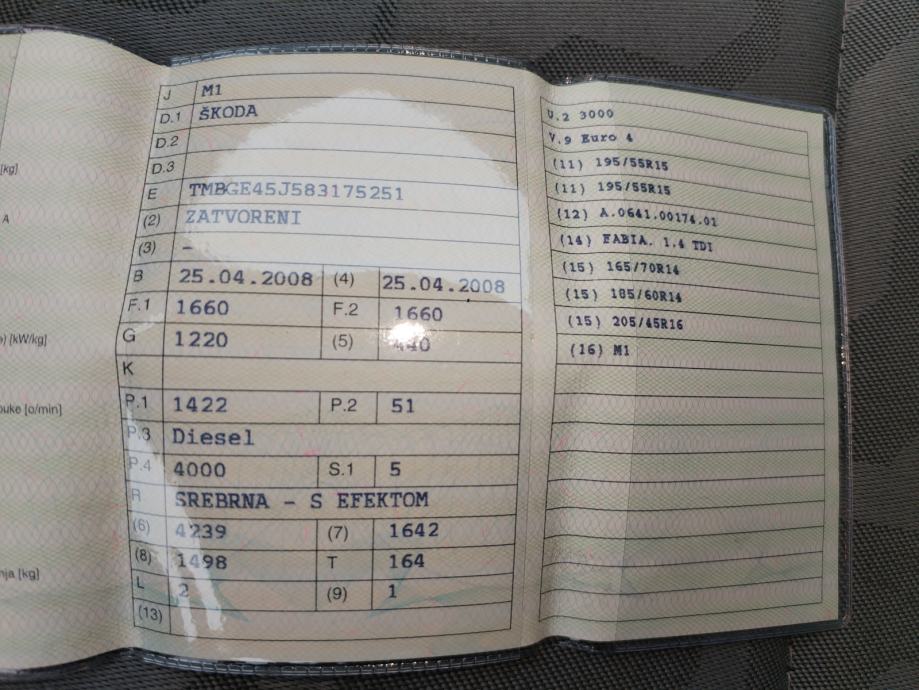 [kg]
A
) [kW/kg]
buke [o/min]
nja [kg]
J M1
D.1 ŠKODA
D.2
D.3
E TMBGE45J583175251
(2) ZATVORENI
(3) -
B 25.04.2008 (4) 25.04.2008
F.1 1660 F.2 1660
G 1220 (5) 440
K
P.1 1422 P.2 51
P.3 Diesel
P.4 4000 S.1 5
R SREBRNA - S EFEKTOM
(6) 4239 (7) 1642
(8) 1498 T 164
L 2 (9) 1
(13)
U.2 3000
V.9 Euro 4
(11) 195/55R15
(11) 195/55R15
(12) A.0641.00174.01
(14) FABIA. 1.4 TDI
(15) 165/70R14
(15) 185/60R14
(15) 205/45R16
(16) M1